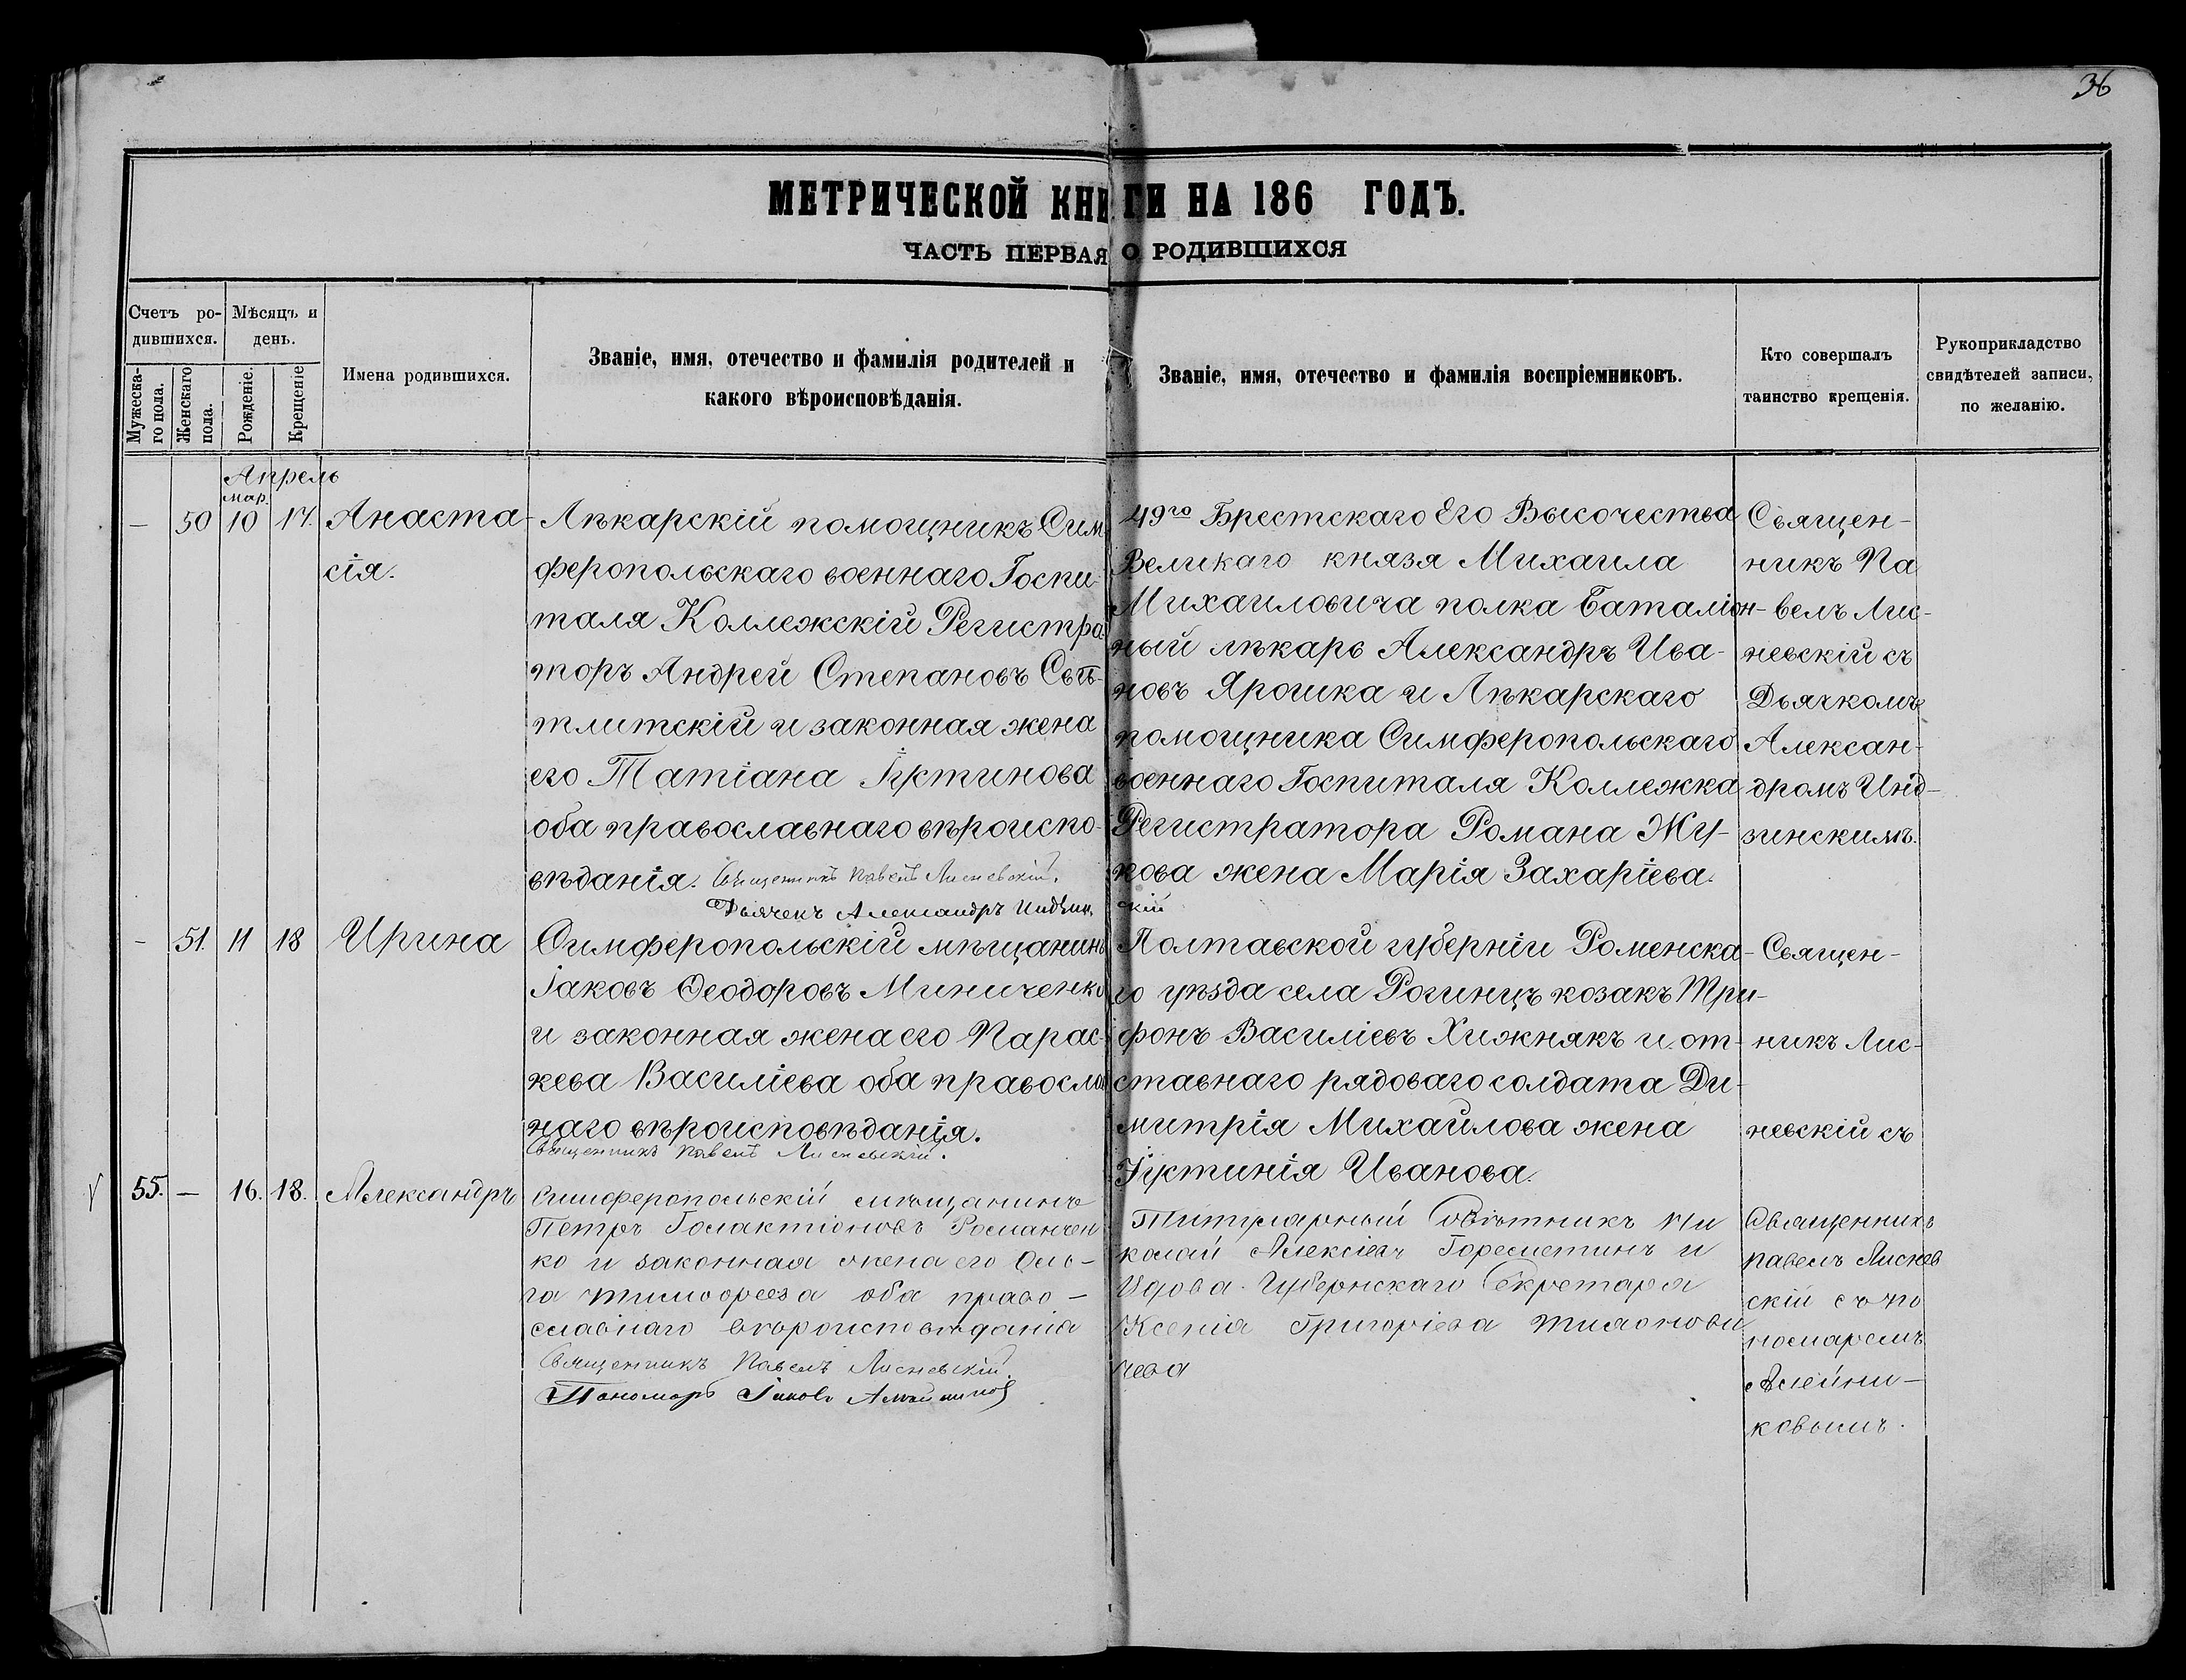 36
МЕТРИЧЕСКОЙ КНИГИ НА 186 ГОДЪ.
ЧАСТЬ ПЕРВАЯ О РОДИВШИХСЯ
Счетъ ро-
дившихся.
Мѣсяцъ и
день.
Мужеска-
го пола.
Женскаго
пола.
Рожденіе.
Крещеніе
Имена родившихся.
Званіе, имя, отечество и фамилія родителей и
какого вѣроисповѣданія.
Званіе, имя, отечество и фамилія воспріемниковъ.
Кто совершалъ
таинство крещенія.
Рукоприкладство
свидѣтелей записи,
по желанію.
Апрель
мар.
— 50 10 17. Анаста-
сія.
Лѣкарскій помощникъ Сим
феропольскаго военнаго Госпи-
таля Коллежскій Регистра
торъ Андрей Степановъ Свѣ-
тлитскій и законная жена
его Татіана Іустинова
оба православнаго вѣроиспо-
вѣданія. Священникъ Павелъ Лисневскій.
Дьячекъ Александръ Индзин
скій
49го Брестскаго Его Высочества
Великаго князя Михаила
Михаиловича полка Баталіон-
ный лѣкарь Александръ Ива-
новъ Ярошка и Лѣкарскаго
помощника Симферопольскаго
военнаго Госпиталя Коллежка
Регистратора Романа Жу-
кова жена Марія Захаріева.
Священ-
никъ Па
велъ Лис-
невскій съ
Дьячкомъ
Алексан-
дромъ Инд-
зинскимъ.
— 51. 11 18 Ирина
Симферопольскій мѣщанинъ
Іаковъ Ѳеодоровъ Миниченко
и законная жена его Парас-
кева Василіева оба правосла
наго вѣроисповѣданія.
Священникъ Павелъ Лисневскій.
Полтавской губерніи Роменска-
го уѣзда села Рогинцъ козакъ Три-
фонъ Василіевъ Хижнякъ и от-
ставнаго рядоваго солдата Ди-
митрія Михаилова жена
Іустинія Иванова.
Священ-
никъ Лис-
невскій съ
55. — 16. 18. Александръ
Симферопольскій мѣщанинъ
Петръ Галактіоновъ Романчен
ко и законная жена его Оль-
га Тимофеева оба право-
славнаго вѣроисповѣданія
Священникъ Павелъ Лисневскій.
Пономарь Іаковъ
Титулярный Совѣтникъ Ни
колай Алексіевъ Горесметинъ и
Вдова Губернскаго Секретаря
Ксенія Григоріева Тихонови
чева
Священникъ
Павелъ Лиснев
скій съ по
номаремъ
Алейни-
ковымъ.